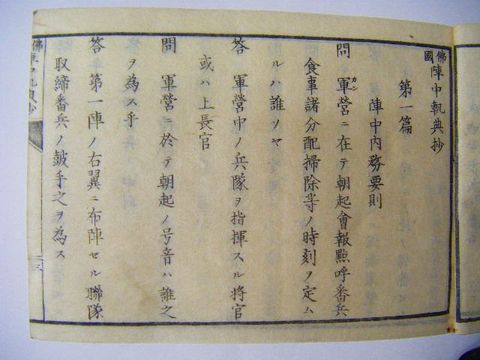 佛國陣中軌典抄
第一篇
陣中内務要則
問 軍営ニ在テ朝起會報點呼番兵
食事諸分配掃除等ノ時刻ヲ定ム
ルハ誰ソヤ
答 軍営中ノ兵隊ヲ指揮スル将官
或ハ上長官
問 軍営ニ於テ朝起ノ号音ハ誰之
ヲ為ス乎
答 第一陣ノ右翼ニ布陣セル聯隊
取締番兵ノ皷手之ヲ為ス